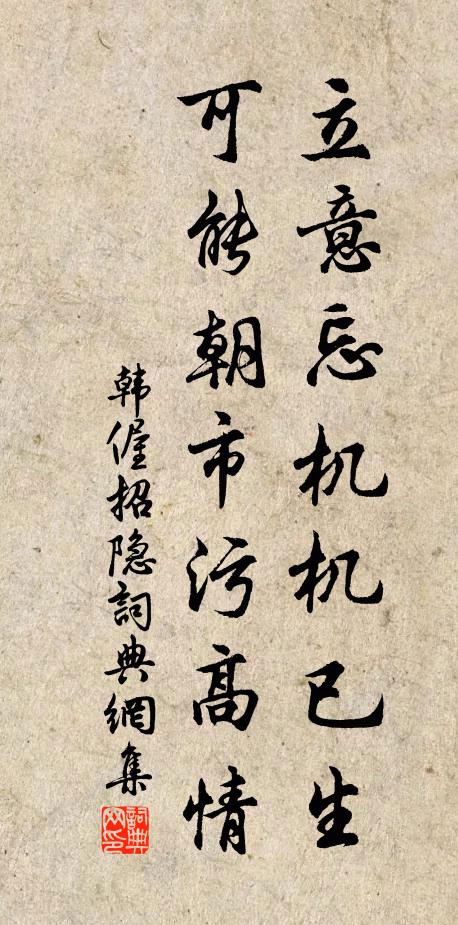 立意忘机机已生
可能朝市污高情
韩偓招隐詞典網集
詞典網印